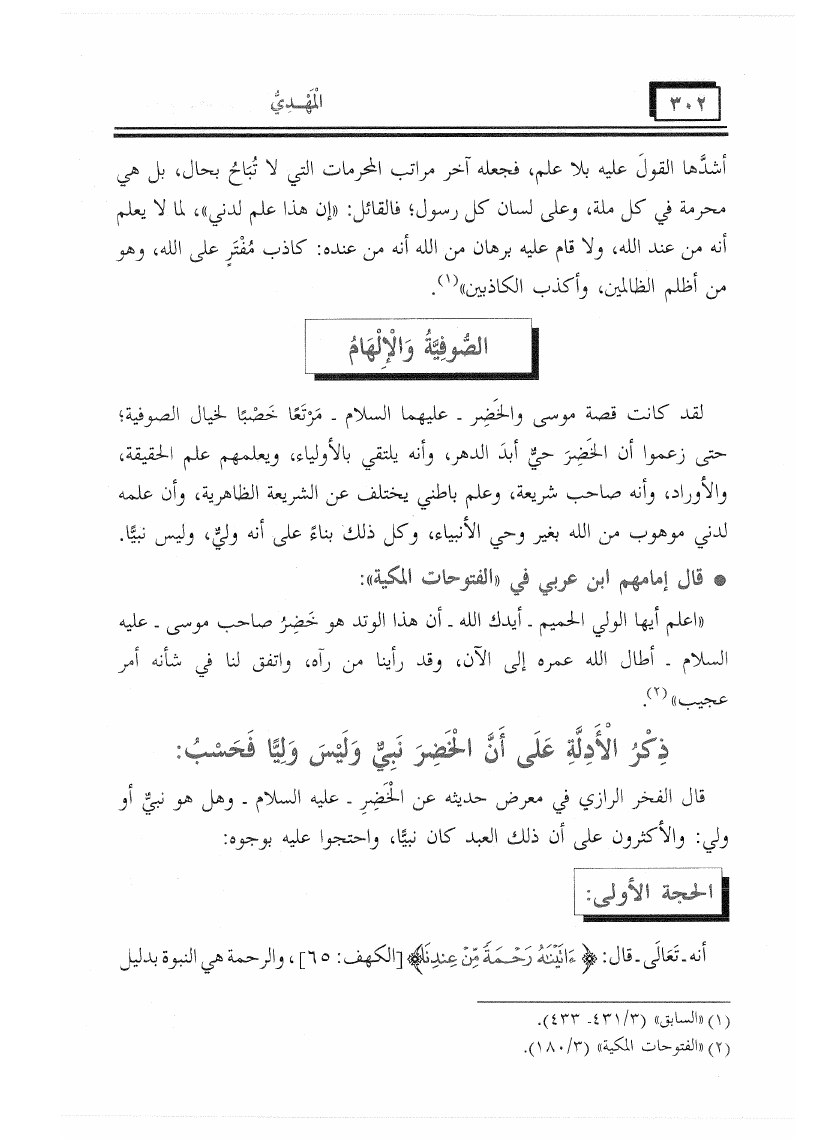 ٣٠٢
الْمَهْـدِيُّ
أشدَّها القولَ عليه بلا علم، فجعله آخر مراتب المحرمات التي لا تُبَاحُ بحال، بل هي
محرمة في كل ملة، وعلى لسان كل رسول؛ فالقائل: «إن هذا علم لدني»، لما لا يعلم
أنه من عند الله، ولا قام عليه برهان من الله أنه من عنده: كاذب مُفْتَرٍ على الله، وهو
من أظلم الظالمين، وأكذب الكاذبين»(١).
الصُّوفِيَّةُ وَالْإِلْهَامُ
لقد كانت قصة موسى والخَضِر ـ عليهما السلام ـ مَرْتَعًا خَصْبًا لخيال الصوفية؛
حتى زعموا أن الخَضِرَ حيٌّ أبدَ الدهر، وأنه يلتقي بالأولياء، ويعلمهم علم الحقيقة،
والأوراد، وأنه صاحب شريعة، وعلم باطني يختلف عن الشريعة الظاهرية، وأن علمه
لدني موهوب من الله بغير وحي الأنبياء، وكل ذلك بناءً على أنه وليٌّ، وليس نبيًّا.
● قال إمامهم ابن عربي في «الفتوحات المكية»:
«اعلم أيها الولي الحميم ـ أيدك الله ـ أن هذا الوتد هو خَضِرُ صاحب موسى ـ عليه
السلام ـ أطال الله عمره إلى الآن، وقد رأينا من رآه، واتفق لنا في شأنه أمر
عجيب»(٢).
ذِكْرُ الْأَدِلَّةِ عَلَى أَنَّ الْخَضِرَ نَبِيٌّ وَلَيْسَ وَلِيًّا فَحَسْبُ:
قال الفخر الرازي في معرض حديثه عن الْخَضِرِ ـ عليه السلام ـ وهل هو نبيٌّ أو
ولي: والأكثرون على أن ذلك العبد كان نبيًّا، واحتجوا عليه بوجوه:
الحجة الأولى:
أنه ـ تَعَالَى ـ قال: ﴿ءَاتَيْنَٰهُ رَحْمَةً مِّنْ عِندِنَا﴾ [الكهف: ٦٥]، والرحمة هي النبوة بدليل
(١) «السابق» (٣/ ٤٣١ـ ٤٣٣).
(٢) «الفتوحات المكية» (٣/ ١٨٠).